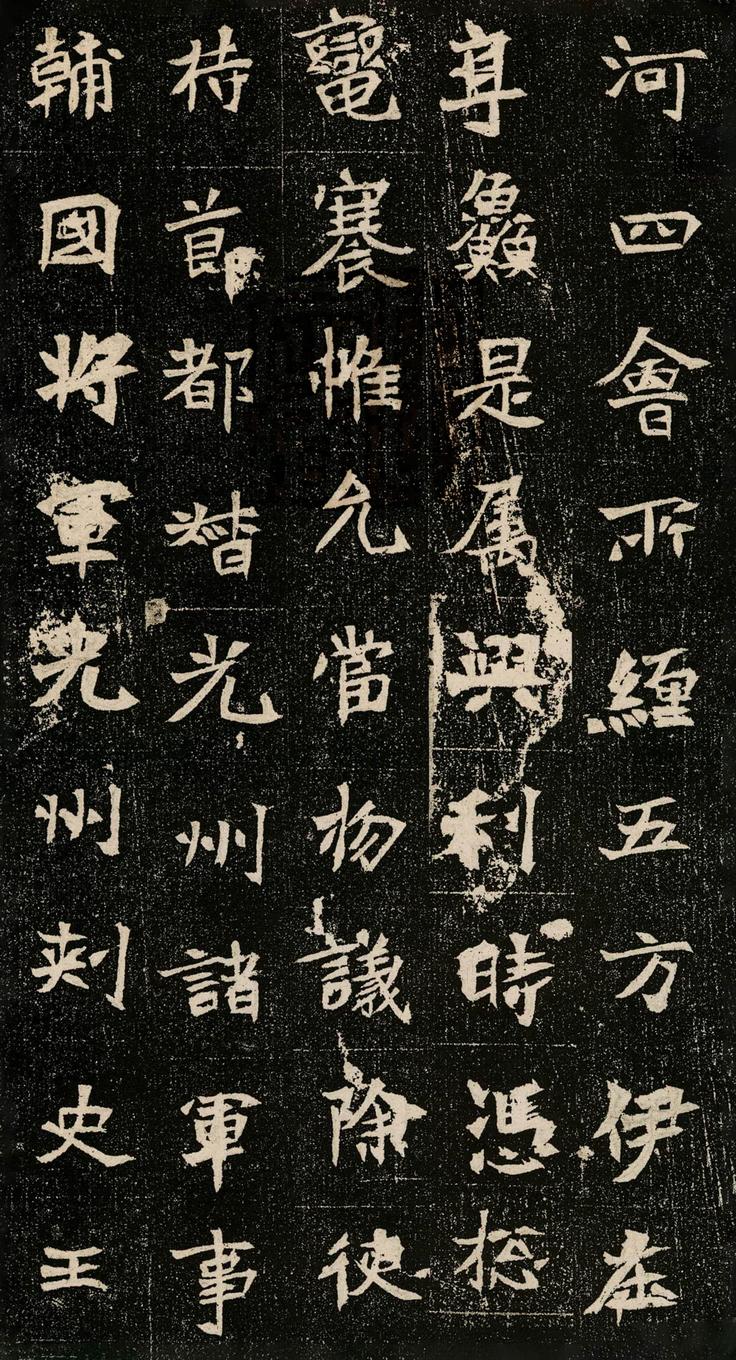 河四會所纏五方伊在
享鱻是属興利時憑揔
轡褰帷允當物議除使
持節都督光州諸軍事
輔國將軍光州刺史王